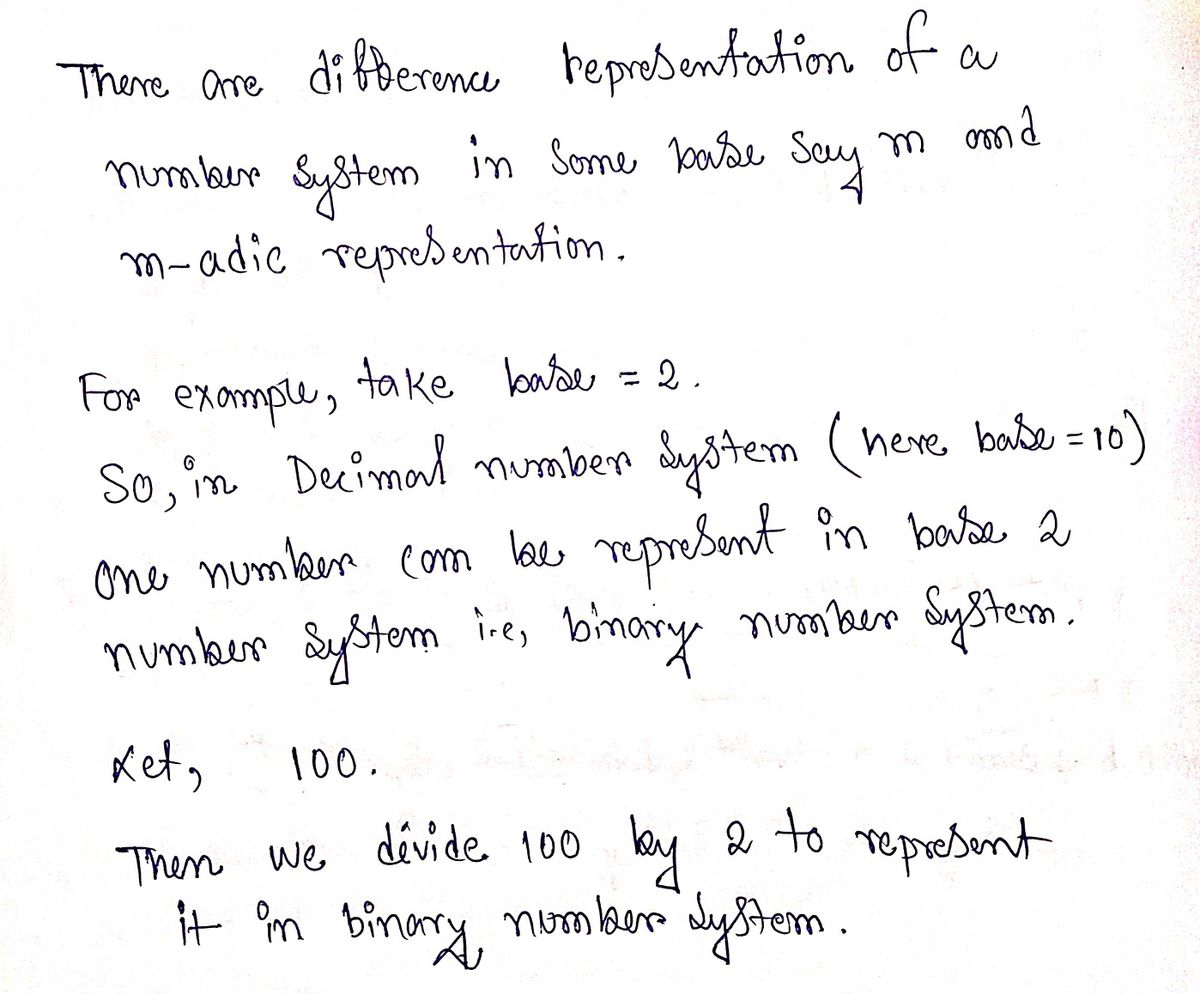 There are difference representation of a
number system in some base say m and
m-adic representation.
For example, take base = 2.
So, in Decimal number system (here base = 10)
one number can be represent in base 2
number system i.e, binary number system.
Let, 100.
Then we divide 100 by 2 to represent
it in binary number system.